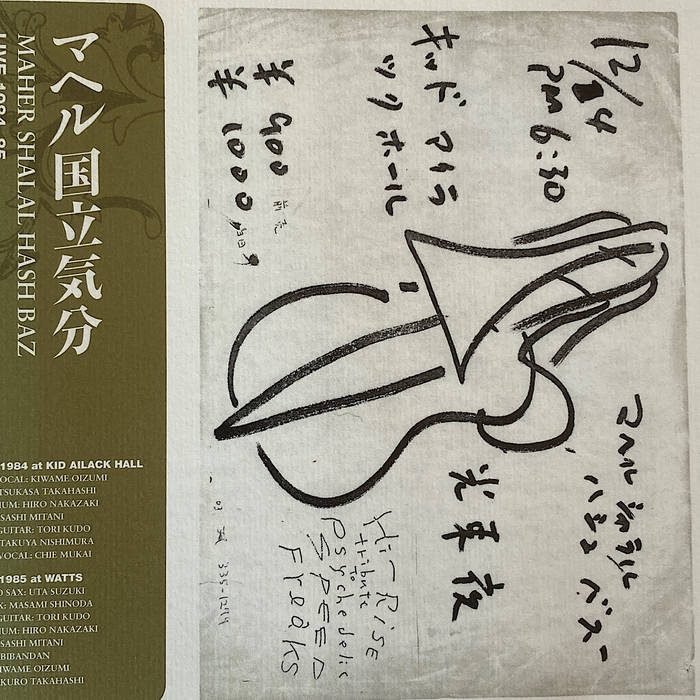 マヘル国立気分
MAHER SHALAL HASH BAZ
LIVE 1984-85
1984 at KID AILACK HALL
VOCAL: KIWAME OIZUMI
TSUKASA TAKAHASHI
UM: HIRO NAKAZAKI
SASHI MITANI
GUITAR: TORI KUDO
TAKUYA NISHIMURA
VOCAL: CHIE MUKAI
1985 at WATTS
O SAX: UTA SUZUKI
X: MASAMI SHINODA
GUITAR: TORI KUDO
UM: HIRO NAKAZAKI
SASHI MITANI
BIBANDAN
IWAME OIZUMI
KURO TAKAHASHI
12/24
PM 6:30
キッド アイラ
ック ホール
¥900 前売
¥1000 当日
マヘル シャラル
ハシュ バズ
光束夜
Hi-Rise
tribute
To
Psychedelic
SPEED
Freaks
03